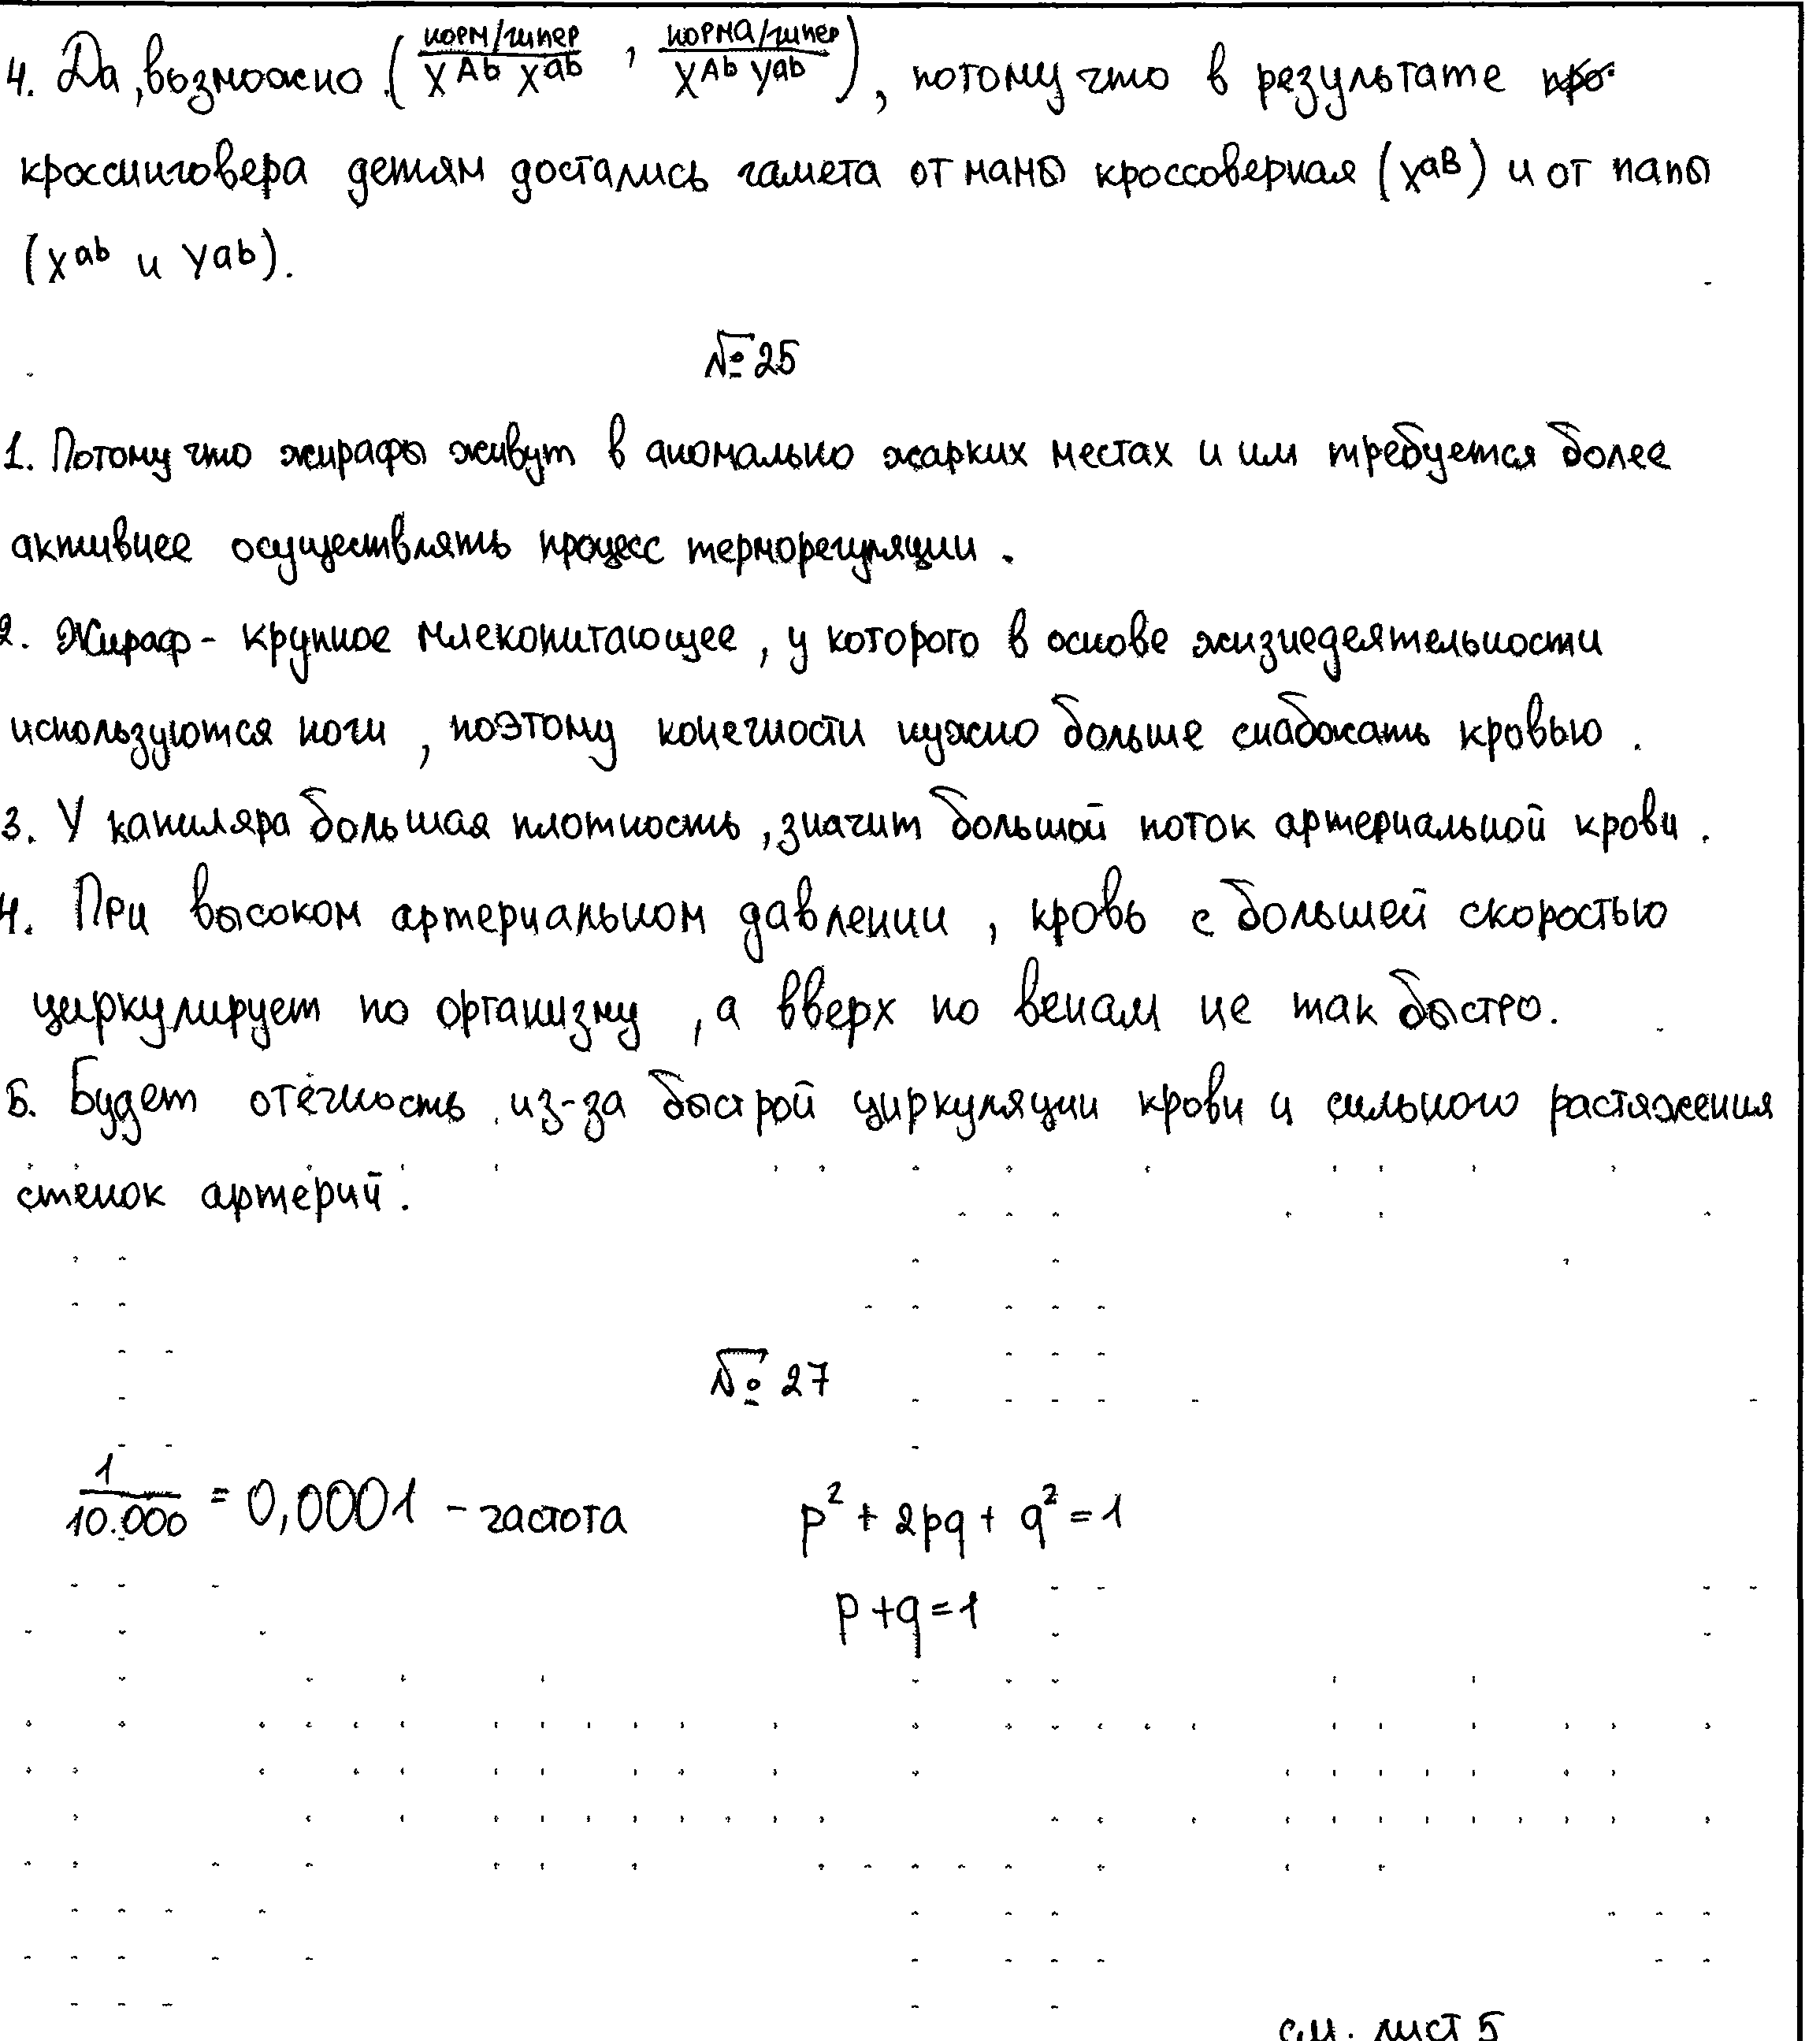 4. Да, возможно. (норм/гипер X^Ab X^ab , норма/гипер X^Ab Y^ab), потому что в результате
кроссинговера детям достались гамета от мамы кроссоверная (X^aB) и от папы
(X^ab и Y^ab).
№ 25
1. Потому что жирафы живут в аномально жарких местах и им требуется более
активнее осуществлять процесс терморегуляции.
2. Жираф - крупное млекопитающее, у которого в основе жизнедеятельности
используются ноги, поэтому конечности нужно больше снабжать кровью.
3. У капиляра большая плотность, значит большой поток артериальной крови.
4. При высоком артериальном давлении, кровь с большей скоростью
циркулирует по организму, а вверх по венам не так быстро.
5. Будет отёчность из-за быстрой циркуляции крови и сильного растяжения
стенок артерий.
№ 27
1/10.000 = 0,0001 - частота p² + 2pq + q² = 1
p + q = 1
см. лист 5